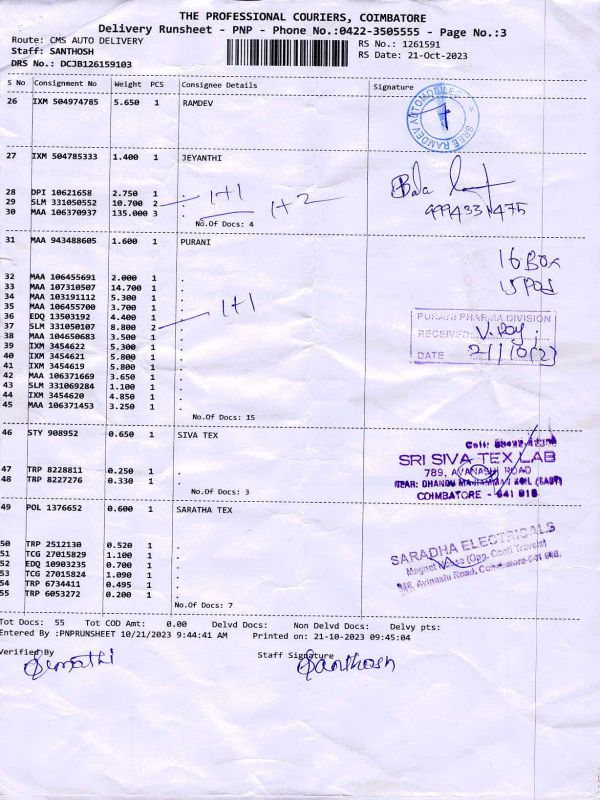 THE PROFESSIONAL COURIERS, COIMBATORE
Delivery Runsheet - PNP - Phone No.:0422-3505555 - Page No.:3
Route: CMS AUTO DELIVERY
RS No.: 1261591
Staff: SANTHOSH
RS Date: 21-Oct-2023
DRS No.: DCJB126159103
S No Consignment No Weight PCS Consignee Details Signature
26 IXM 504974785 5.650 1 RAMDEV
SREE RAMDEV AUTOMOBILES
27 IXM 504785333 1.400 1 JEYANTHI
28 DPI 10621658 2.750 1 .
29 SLM 331050552 10.700 2 . 1+1
30 MAA 106370937 135.000 3 . 1+2
Bala
No.Of Docs: 4
31 MAA 943488605 1.600 1 PURANI
16 Box
32 MAA 106455691 2.000 1 .
33 MAA 107310507 14.700 1 .
34 MAA 103191112 5.300 1 .
35 MAA 106455700 3.700 1 .
36 EDQ 13503192 4.400 1 .
37 SLM 331050107 8.800 2 . 1+1
38 MAA 104650683 3.500 1 .
39 IXM 3454622 5.300 1 .
40 IXM 3454621 5.800 1 .
41 IXM 3454619 5.800 1 .
42 MAA 106371669 3.650 1 .
43 SLM 331069284 1.100 1 .
44 IXM 3454620 4.850 1 .
45 MAA 106371453 3.250 1 .
PURANI PHARMA DIVISION
RECEIVED:
DATE 21/10/23
No.Of Docs: 15
46 STY 908952 0.650 1 SIVA TEX
SRI SIVA TEX LAB
789, AVANASHI ROAD
COIMBATORE - 641 018
47 TRP 8228811 0.250 1 .
48 TRP 8227276 0.330 1 .
No.Of Docs: 3
49 POL 1376652 0.600 1 SARATHA TEX
SARADHA ELECTRICALS
50 TRP 2512130 0.520 1 .
51 TCG 27015829 1.100 1 .
52 EDQ 10903235 0.700 1 .
53 TCG 27015824 1.090 1 .
54 TRP 6734411 0.495 1 .
55 TRP 6053272 0.200 1 .
No.Of Docs: 7
Tot Docs: 55 Tot COD Amt: 0.00 Delvd Docs: Non Delvd Docs: Delvy pts:
Entered By :PNPRUNSHEET 10/21/2023 9:44:41 AM Printed on: 21-10-2023 09:45:04
Verified By Staff Signature
Santhosh